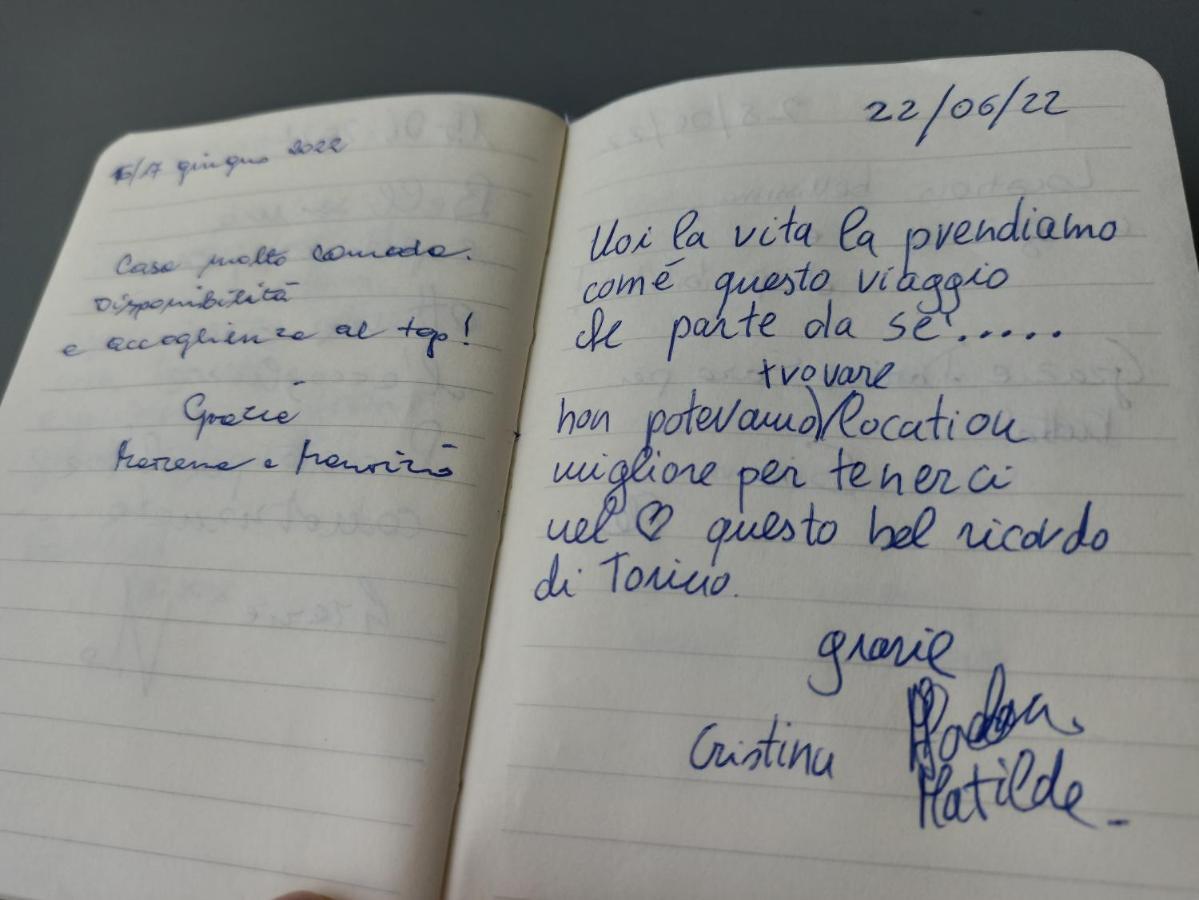 16/17 giugno 2022
Casa molto comoda.
Disponibilità
e accoglienza al top!
Grazie
e Maurizio
22/06/22
Noi la vita la prendiamo
com'é questo viaggio
che parte da sé.....
trovare
non potevamo location
migliore per tenerci
nel ♡ questo bel ricordo
di Torino.
grazie
Cristina
Matilde.